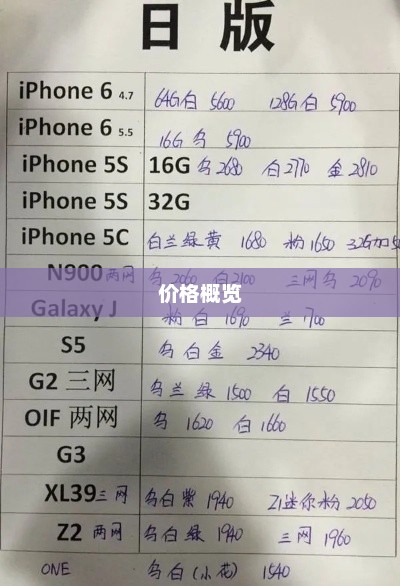 日 版
iPhone 6 4.7 64G白 5600 128G白 5900
iPhone 6 5.5 16G 乌 5900
iPhone 5S 16G 乌2680 白2770 金2810
iPhone 5S 32G
iPhone 5C 白兰绿黄 1680 粉1650 32G加50
N900两网 乌2060 白2100 三网乌 2090
价格概览
Galaxy J 粉 白 1690 兰 1700
S5 乌 白 金 2340
G2 三网 乌 兰 绿 1500 白 1550
OIF 两网 乌 1620 白 1660
G3
XL39三网 乌白紫 1940 Z1迷你粉 2050
Z2 两网 乌白绿 1940 三网 1960
ONE 乌白(小花) 1540